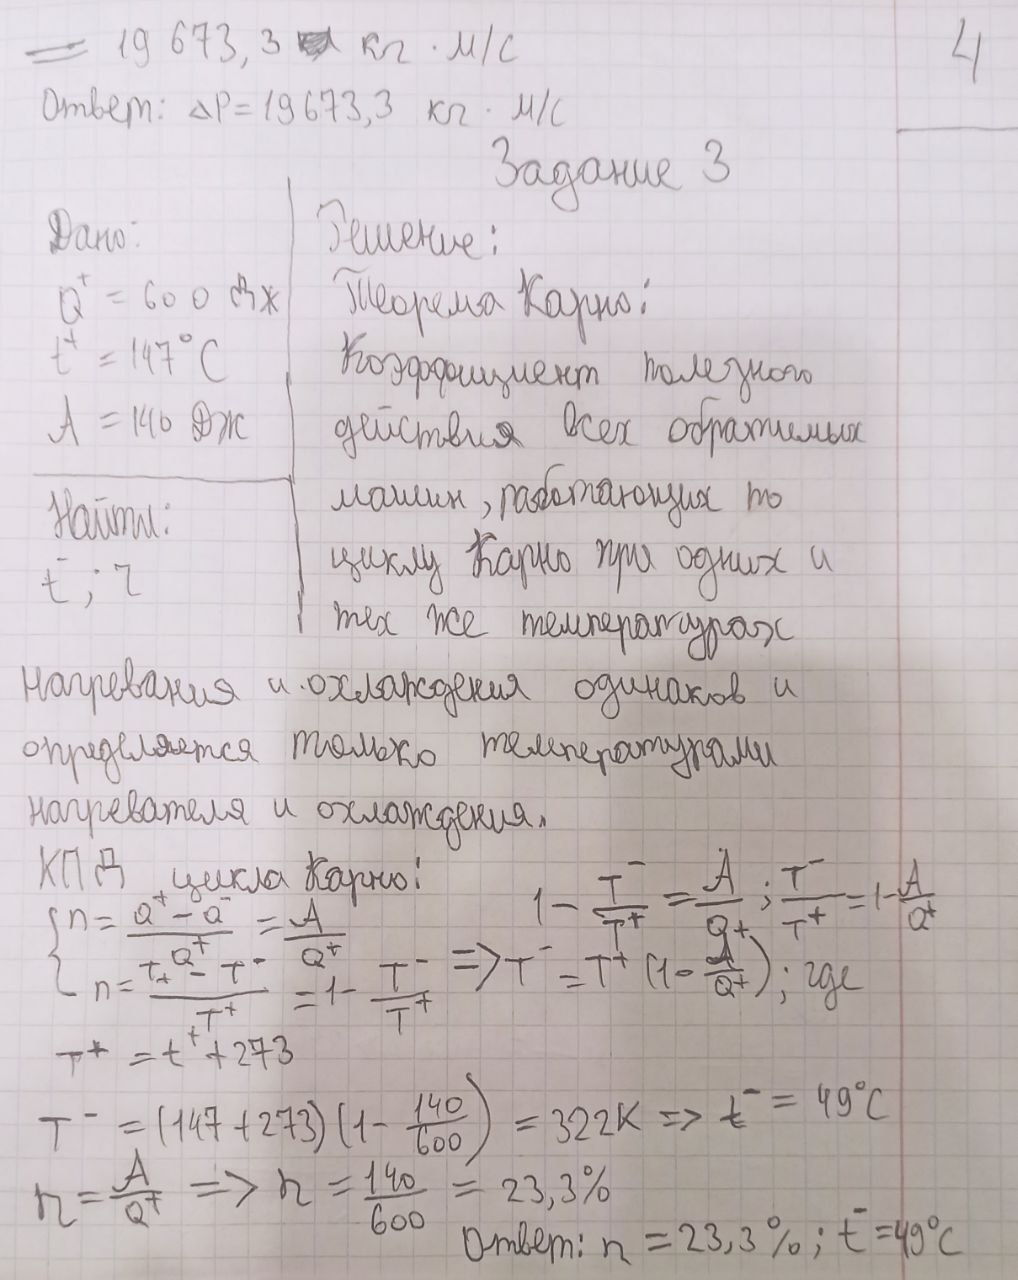 = 19 673,3 кг · м/с
4
Ответ: ΔP = 19673,3 кг · м/с
Задание 3
Дано:
Q⁺ = 600 Дж
t⁺ = 147°C
A = 140 Дж
Найти:
t⁻; η
Решение:
Теорема Карно:
Коэффициент полезного
действия всех обратимых
машин, работающих по
циклу Карно при одних и
тех же температурах
нагревания и охлаждения одинаков и
определяется только температурами
нагревателя и охлаждения.
КПД цикла Карно:
{ n = (Q⁺ - Q⁻)/Q⁺ = A/Q⁺
n = (T₊ - T⁻)/T⁺ = 1 - T⁻/T⁺
1 - T⁻/T⁺ = A/Q⁺; T⁻/T⁺ = 1 - A/Q⁺
=> T⁻ = T⁺ (1 - A/Q⁺); где
T⁺ = t⁺ + 273
T⁻ = (147 + 273)(1 - 140/600) = 322K => t⁻ = 49°C
n = A/Q⁺ => n = 140/600 = 23,3%
Ответ: n = 23,3%; t⁻ = 49°C